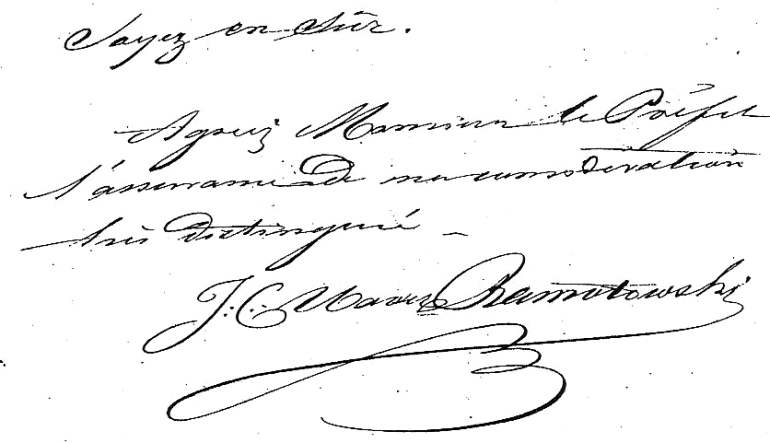 Soyez en sûr.
Agréez Monsieur le Préfet
l'assurance de ma considération
très distinguée
J: C: Ramotowski